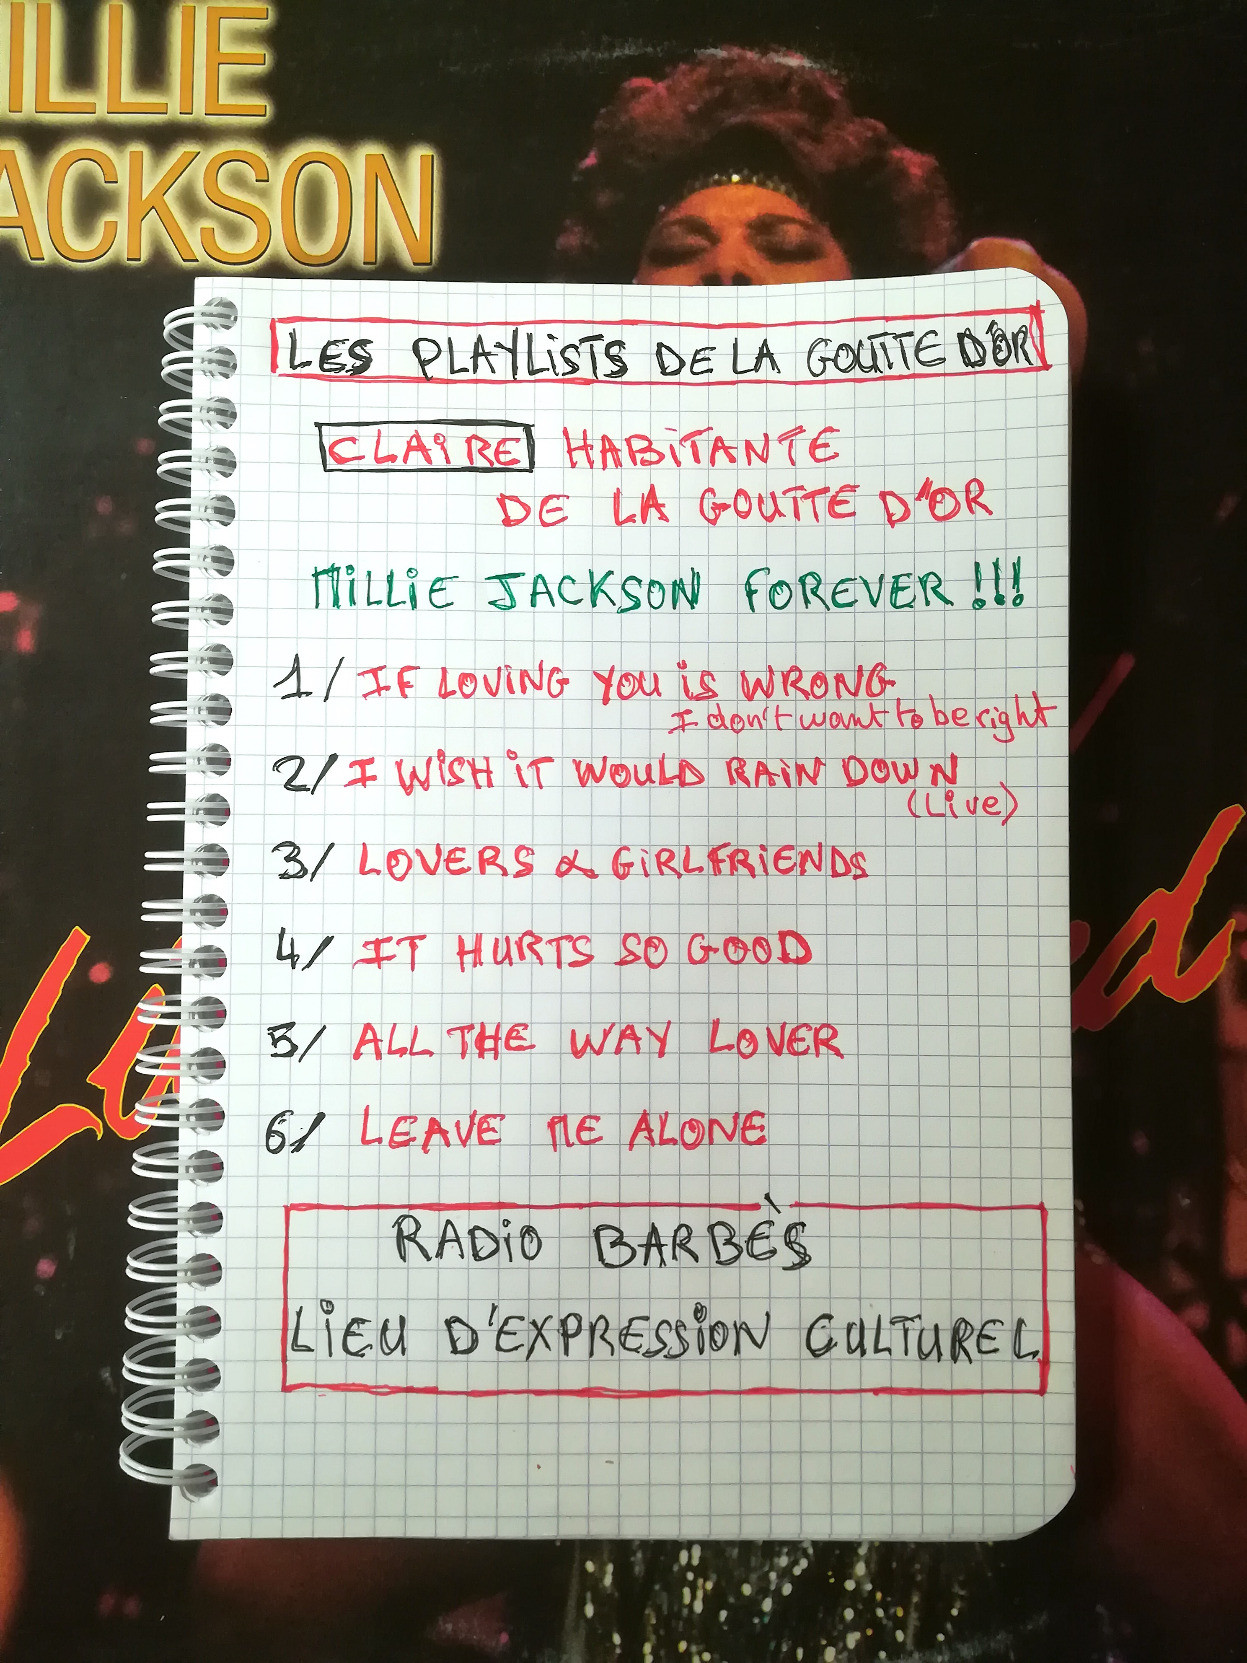 ILLIE
ACKSON
LES PLAYLISTS DE LA GOUTTE D'OR
CLAIRE HABITANTE
DE LA GOUTTE D'OR
MILLIE JACKSON FOREVER !!!
1/ IF LOVING YOU IS WRONG
I don't want to be right
2/ I WISH IT WOULD RAIN DOWN
(Live)
3/ LOVERS & GIRLFRIENDS
4/ IT HURTS SO GOOD
5/ ALL THE WAY LOVER
6/ LEAVE ME ALONE
RADIO BARBÈS
LIEU D'EXPRESSION CULTUREL